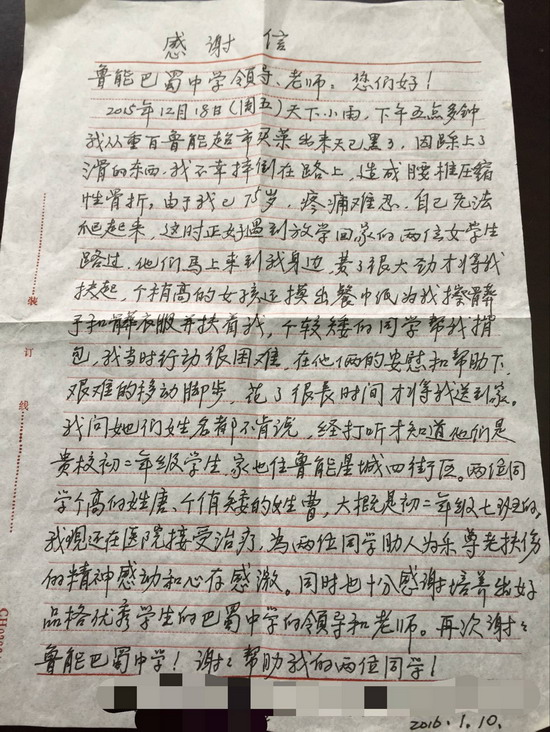 感谢信
鲁能巴蜀中学领导、老师：您们好！
2015年12月18日(周五)天下小雨，下午五点多钟
我从重百鲁能超市买菜出来天已黑了，因踩上了
滑的东西，我不幸摔倒在路上，造成腰椎压缩
性骨折。由于我已75岁，疼痛难忍，自己无法
爬起来，这时正好遇到放学回家的两位女学生
路过，他们马上来到我身边，费了很大劲才将我
扶起，个稍高的女孩还摸出餐巾纸为我擦脏
手和脏衣服并扶着我，个较矮的同学帮我揹
包，我当时行动很困难，在他俩的安慰和帮助下，
艰难的移动脚步，花了很长时间才将我送到家。
我问她们姓名都不肯说，经打听才知道他们是
贵校初二年级学生，家也住鲁能星城四街区。两位同
学个高的姓唐、个偏矮的姓曹，大概是初二年级七班的，
我现还在医院接受治疗，为两位同学助人为乐尊老扶伤
的精神感动和心存感激。同时也十分感谢培养出好
品格优秀学生的巴蜀中学的领导和老师。再次谢谢
鲁能巴蜀中学！谢谢帮助我的两位同学！
2016.1.10.
装
订
线